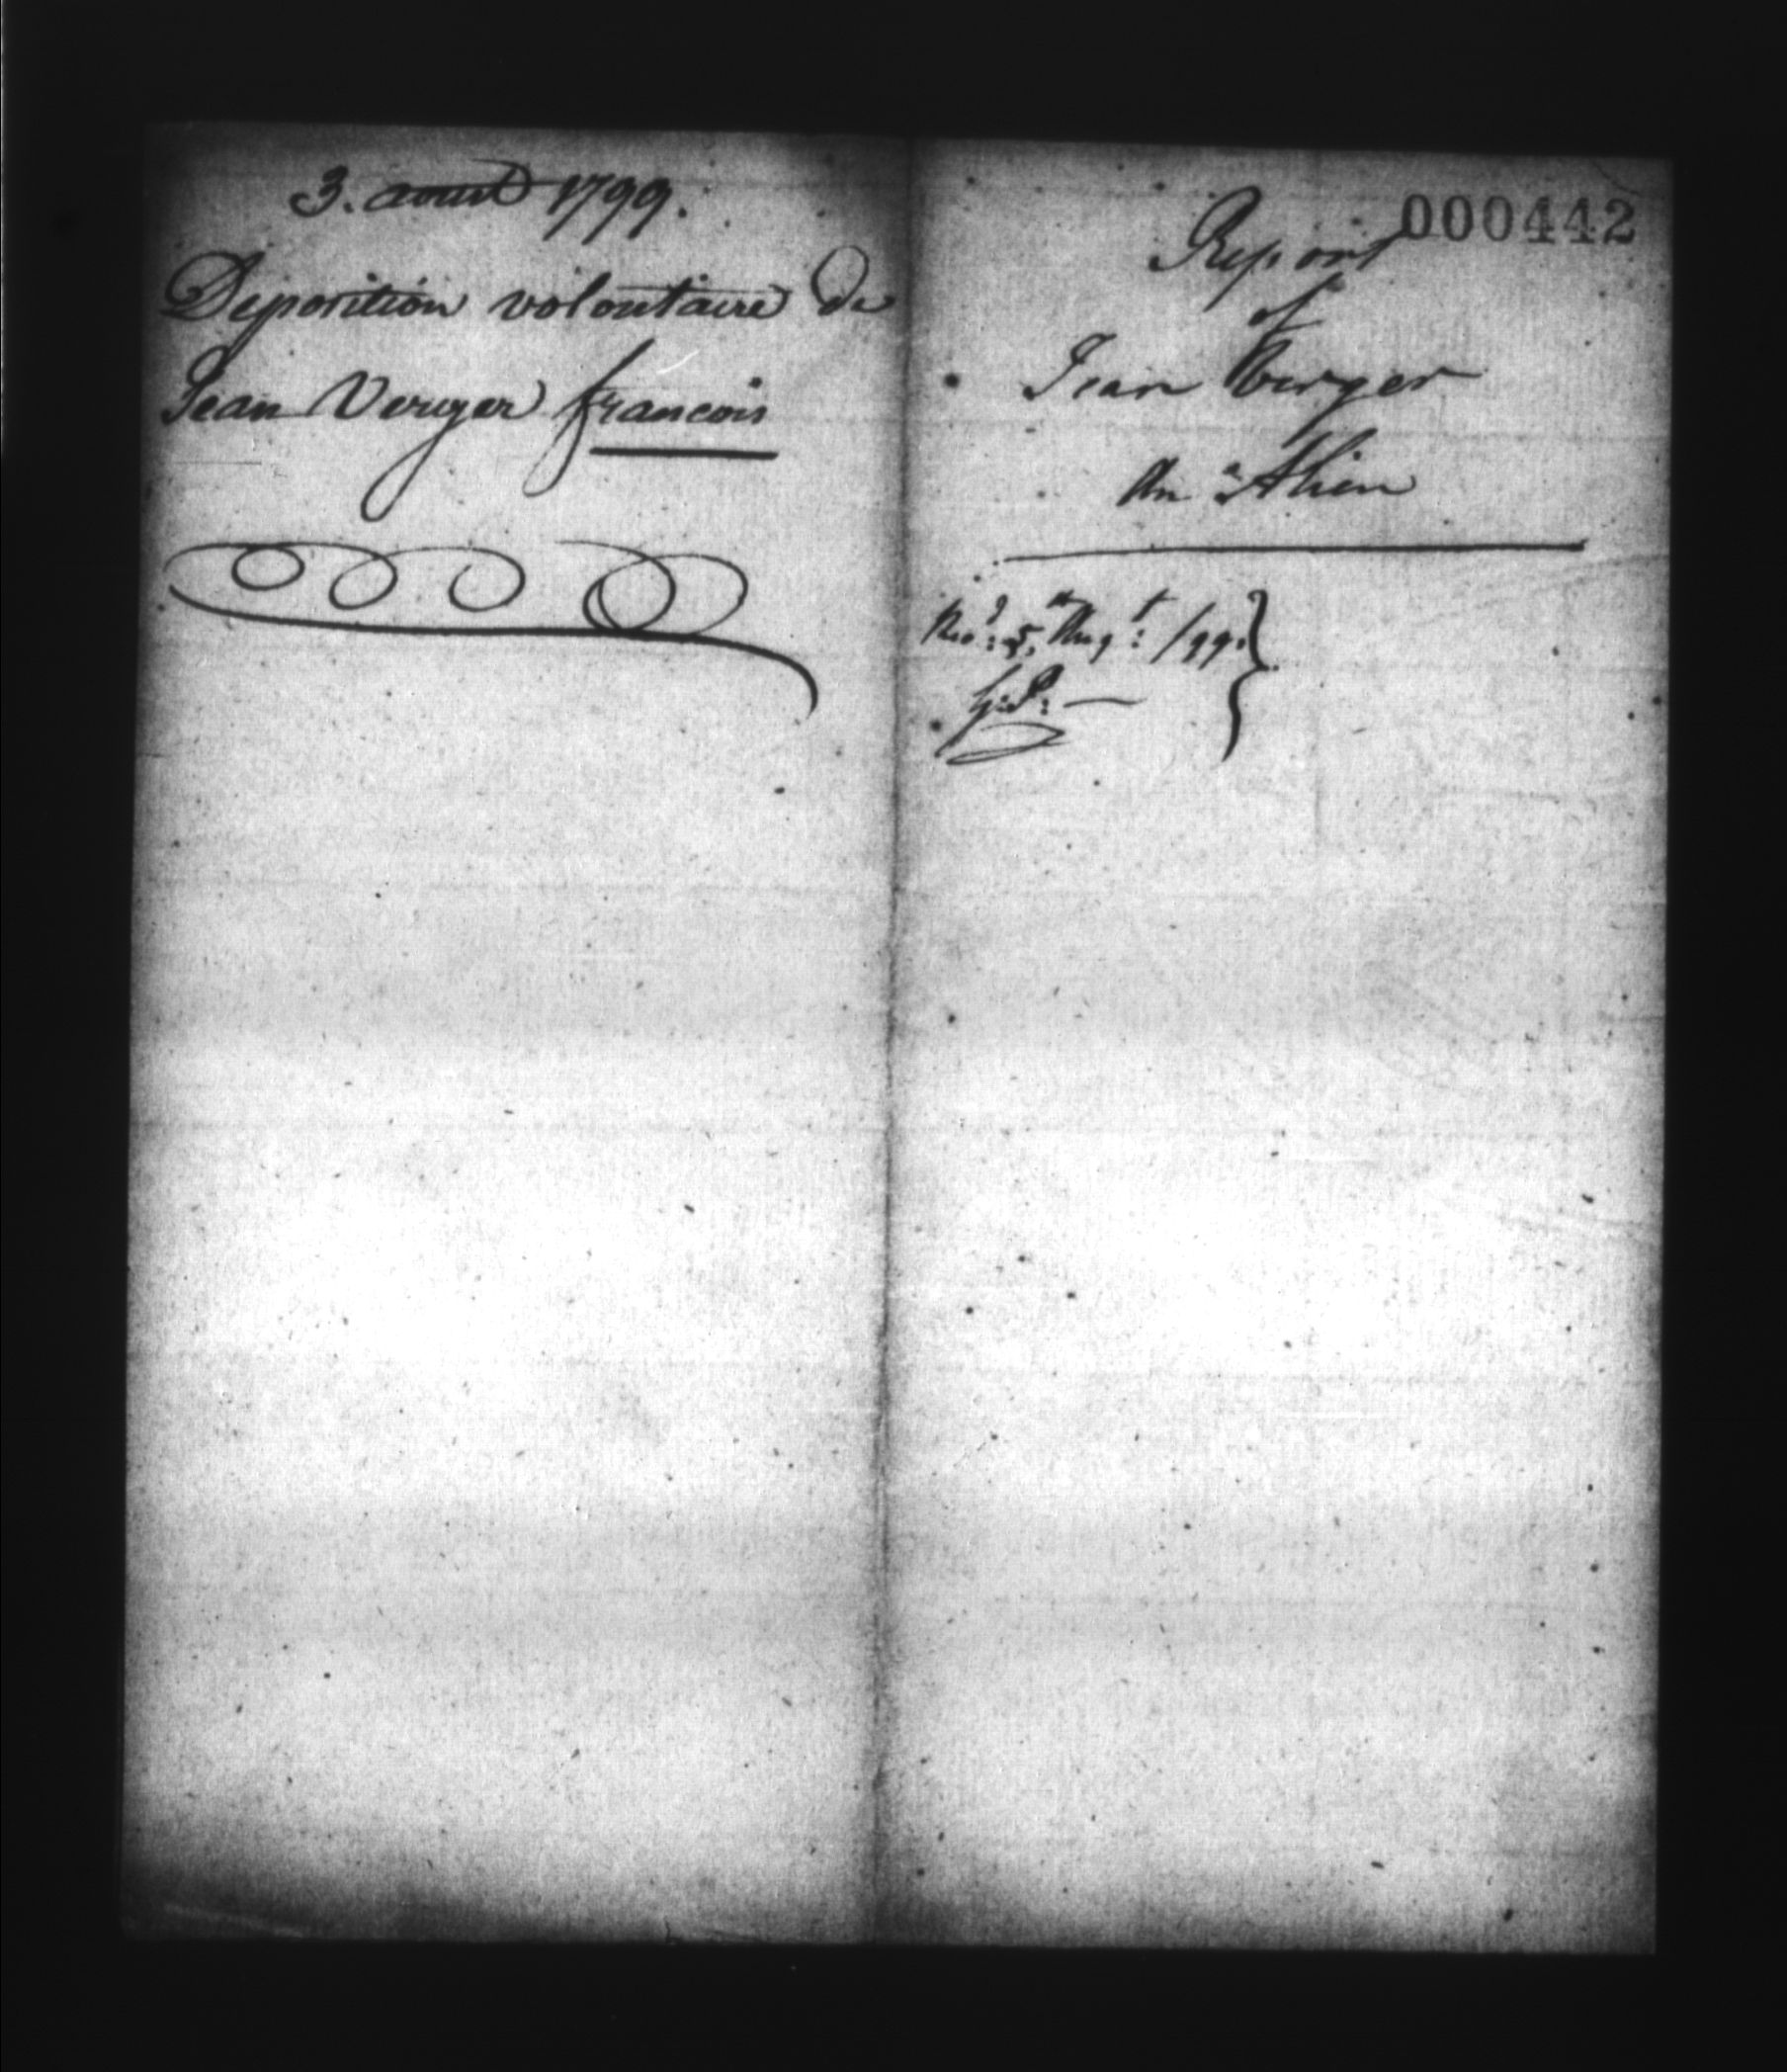 3. aoust 1799.
Deposition volontaire de
Jean Verger francois
000442
Report
of
Jean Verger
An Alien
Recd: 5th Augt: /99.
H:P: